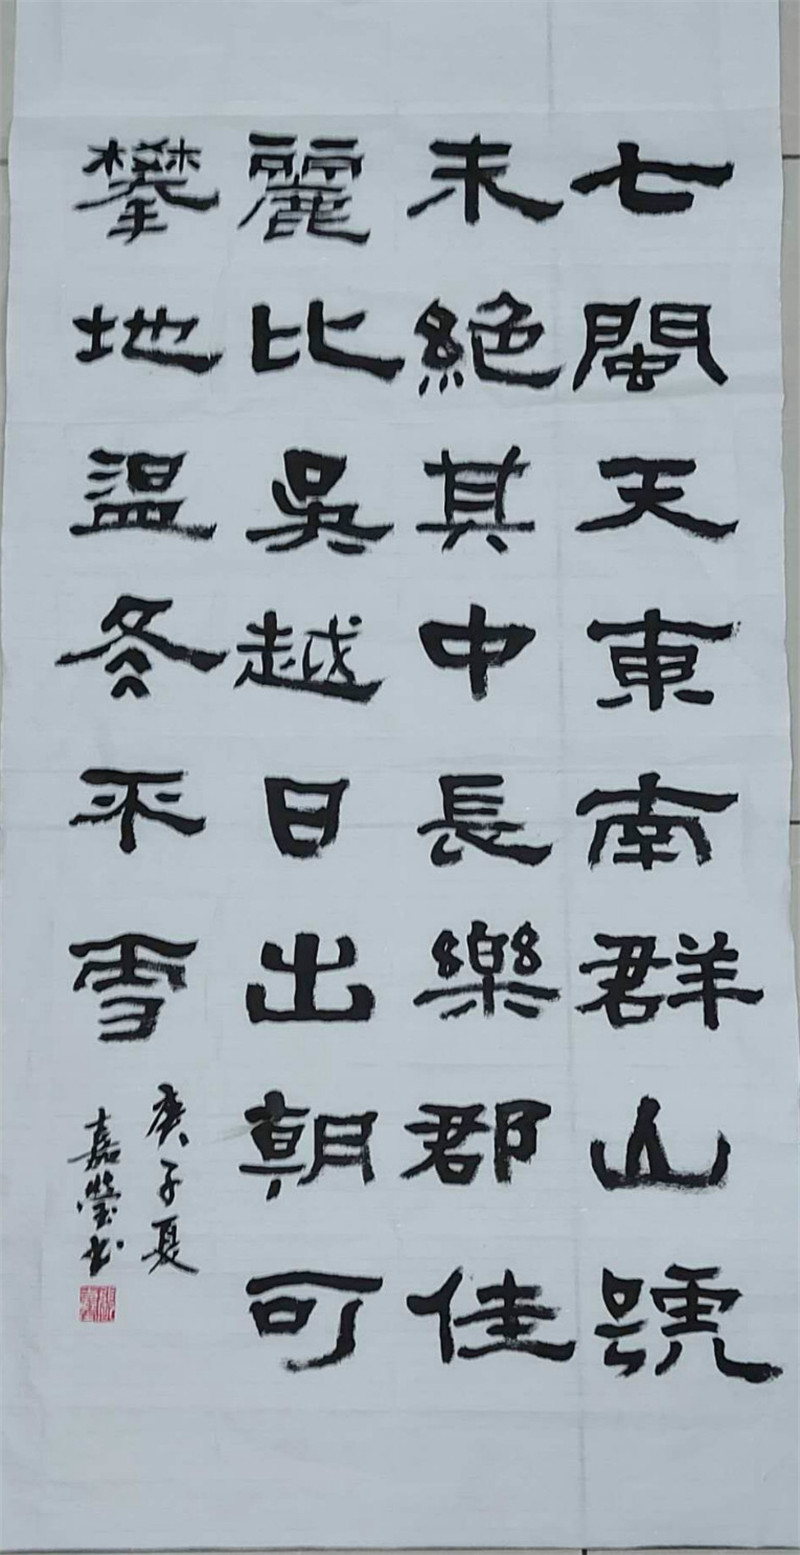 七閩天東南群山號
未絕其中長樂郡佳
麗比吳越日出朝可
攀地温冬不雪
庚子夏
嘉瑩书